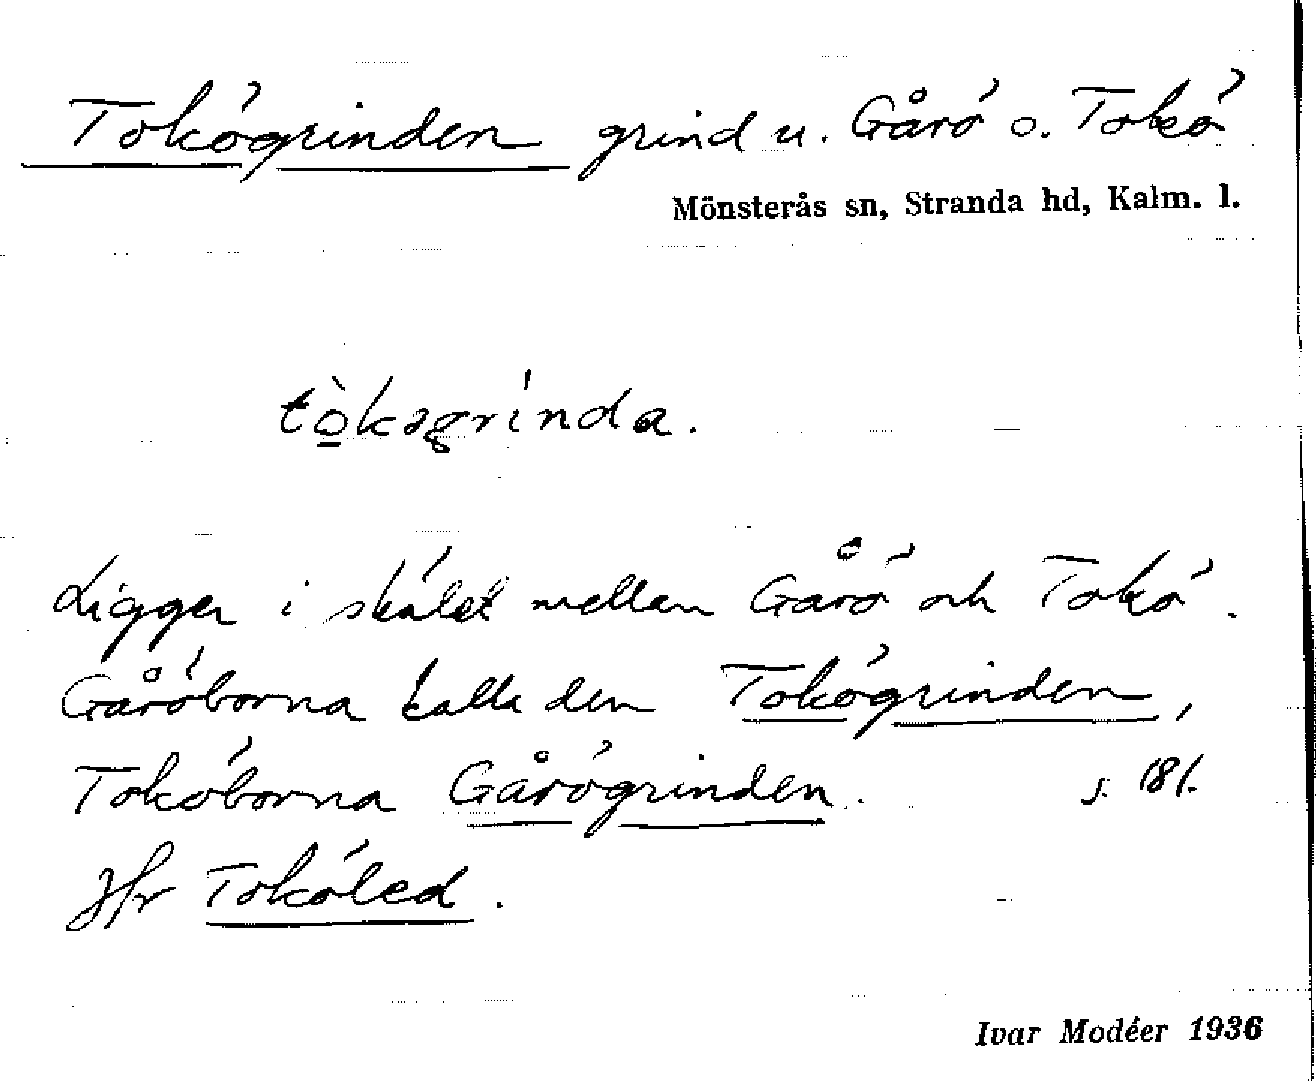 Tokögrinden grind u. Gårö o. Tokö
Mönsterås sn, Stranda hd, Kalm. l.
tòkəgrinda.
Ligger i skälet mellan Gårö och Tokö.
Gåröborna kalla den Tokögrinden,
Toköborna Gårögrinden. s. 181.
Jfr Toköled.
Ivar Modéer 1936